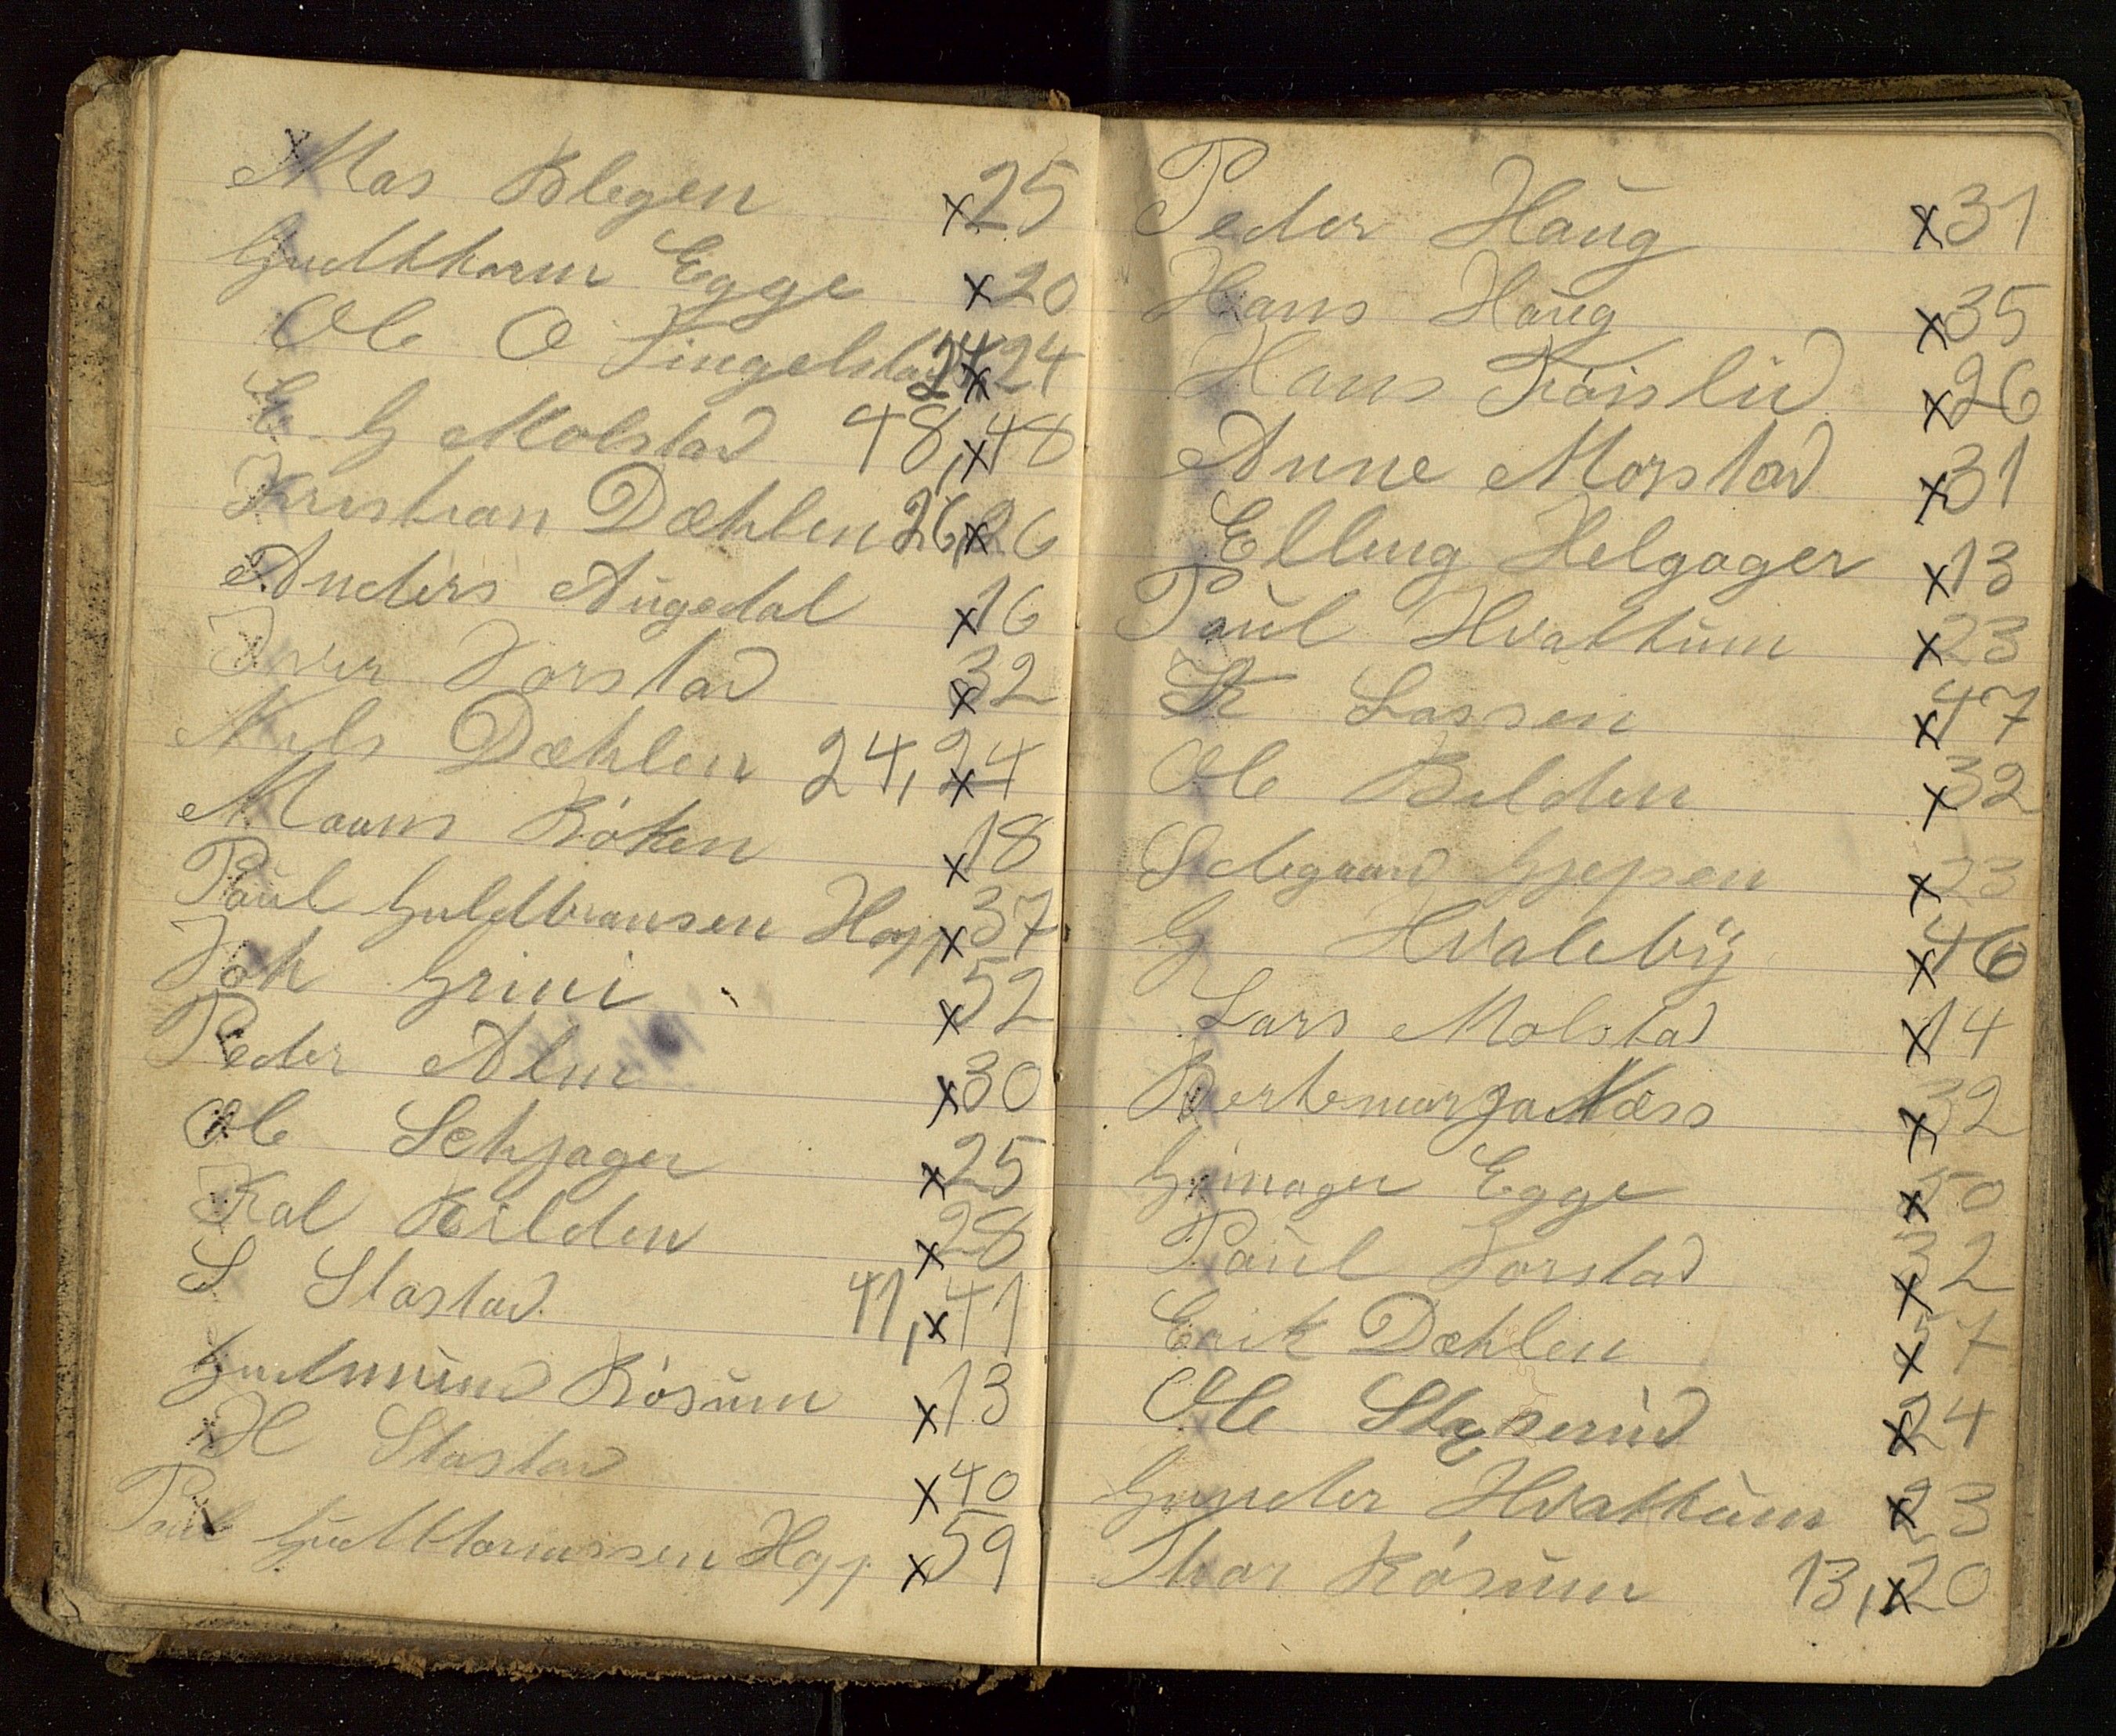 Mas Blegen x25
Gudtkorm Egge x20
Ole O Tingelstad 24x24
E G Molstad 48,x48
Kristian Dæhlen 26,x26
Anders Augedal x16
Iver Jorstad x32
Nels Dæhlen 24,x24
Maans Røken x18
Paul Guldbransen Hop x37
Joh Grini x52
Peder Alm x30
Ole Sehjager x25
Kal Kilden x28
S Stastad 41,x41
Gudmund Røsum x13
H Stastad x40
Paul Gudttormssen Hop x59
Peder Haug x31
Hans Haug x35
Hans x26
Anne Morstad x31
Elling Helgager x13
Paul Hvattum x23
K Lassen x47
Ole Bilden x32
Gjepsen x23
G Hvaleby x46
Lars Molstad x14
Bertemarja Næss x32
Grimager Egge x50
Paul Jorstad x32
Erik Dæhlen x57
Ole x24
Gunder Hvattum x23
Thor Røsum 13,x20